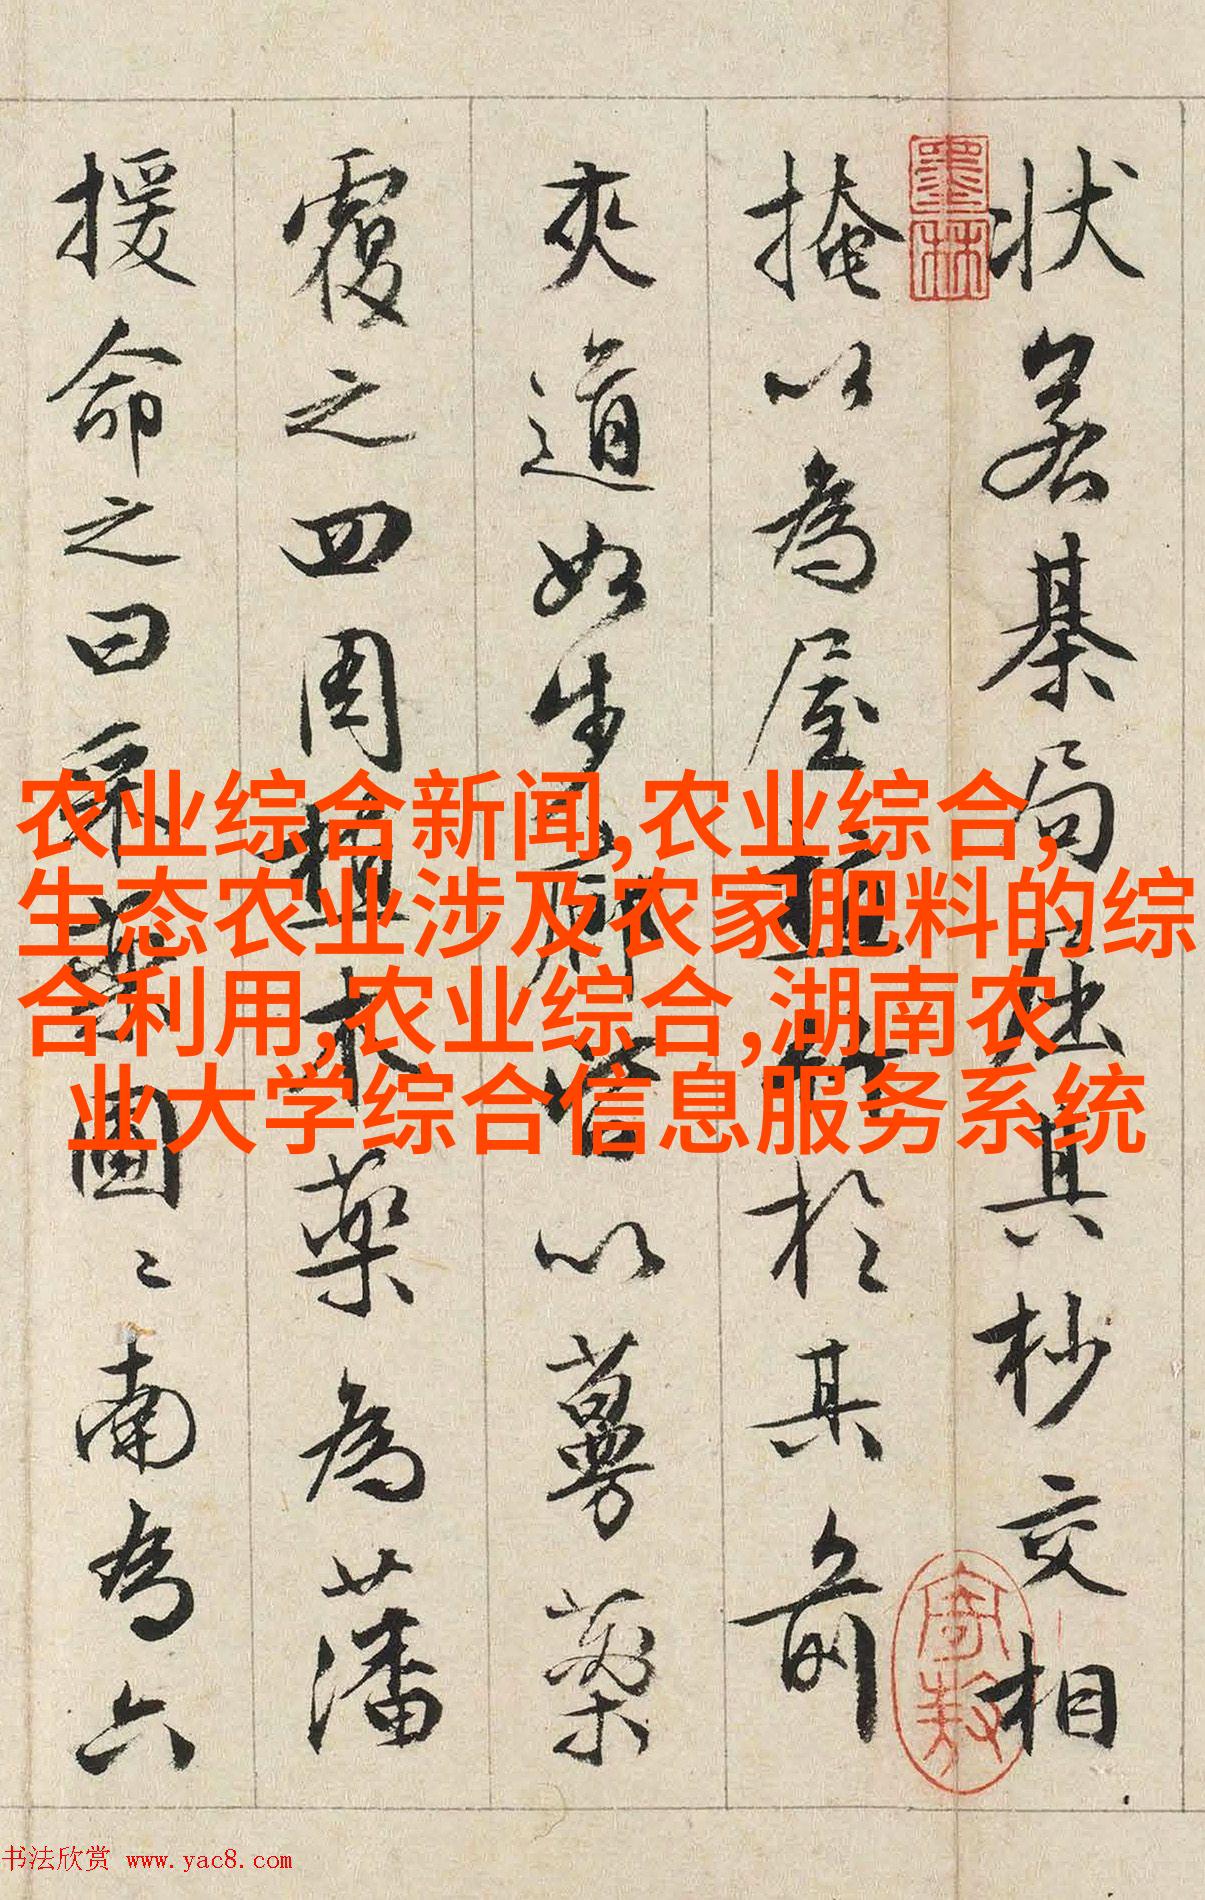 农业综合新闻,农业综合,
生态农业涉及农家肥料的综
合利用,农业综合,湖南农
业大学综合信息服务系统
状若棊局屈其杪交相
掩以為屋植竹於其前
夾道如步廊皆以蔓藥
覆之四周植木藥為藩
援命之曰采藥圃〻南為六
墨林
寄敖
书法欣赏 www.yac8.com